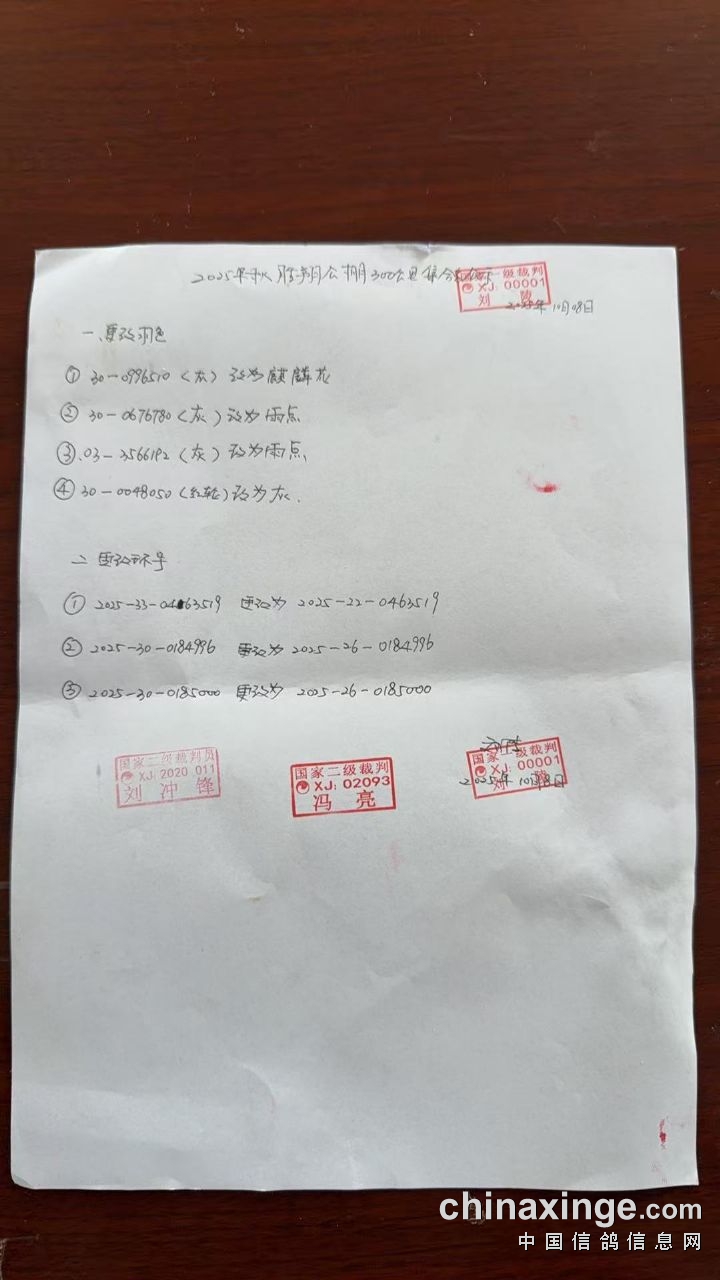 2025年秋胜翔公棚300公里集
国家一级裁判
XJ: 00001
刘 陵
2025年10月08日
一、更改羽色
① 30-0996510(灰)改为麒麟花
② 30-0676780(灰)改为雨点
③.03-3566192(灰)改为雨点
④ 30-0048050(红轮)改为灰.
二 更改环号
① 2025-33-0463519 更改为 2025-22-0463519
② 2025-30-0184996 更改为 2025-26-0184996
③ 2025-30-0185000 更改为 2025-26-0185000
国家二级裁判员
XJ: 2020 011
刘 冲 锋
国家二级裁判
XJ: 02093
冯 亮
国家一级裁判
XJ: 00001
刘
2025年10月8日
chinaxinge.com
中国信鸽信息网